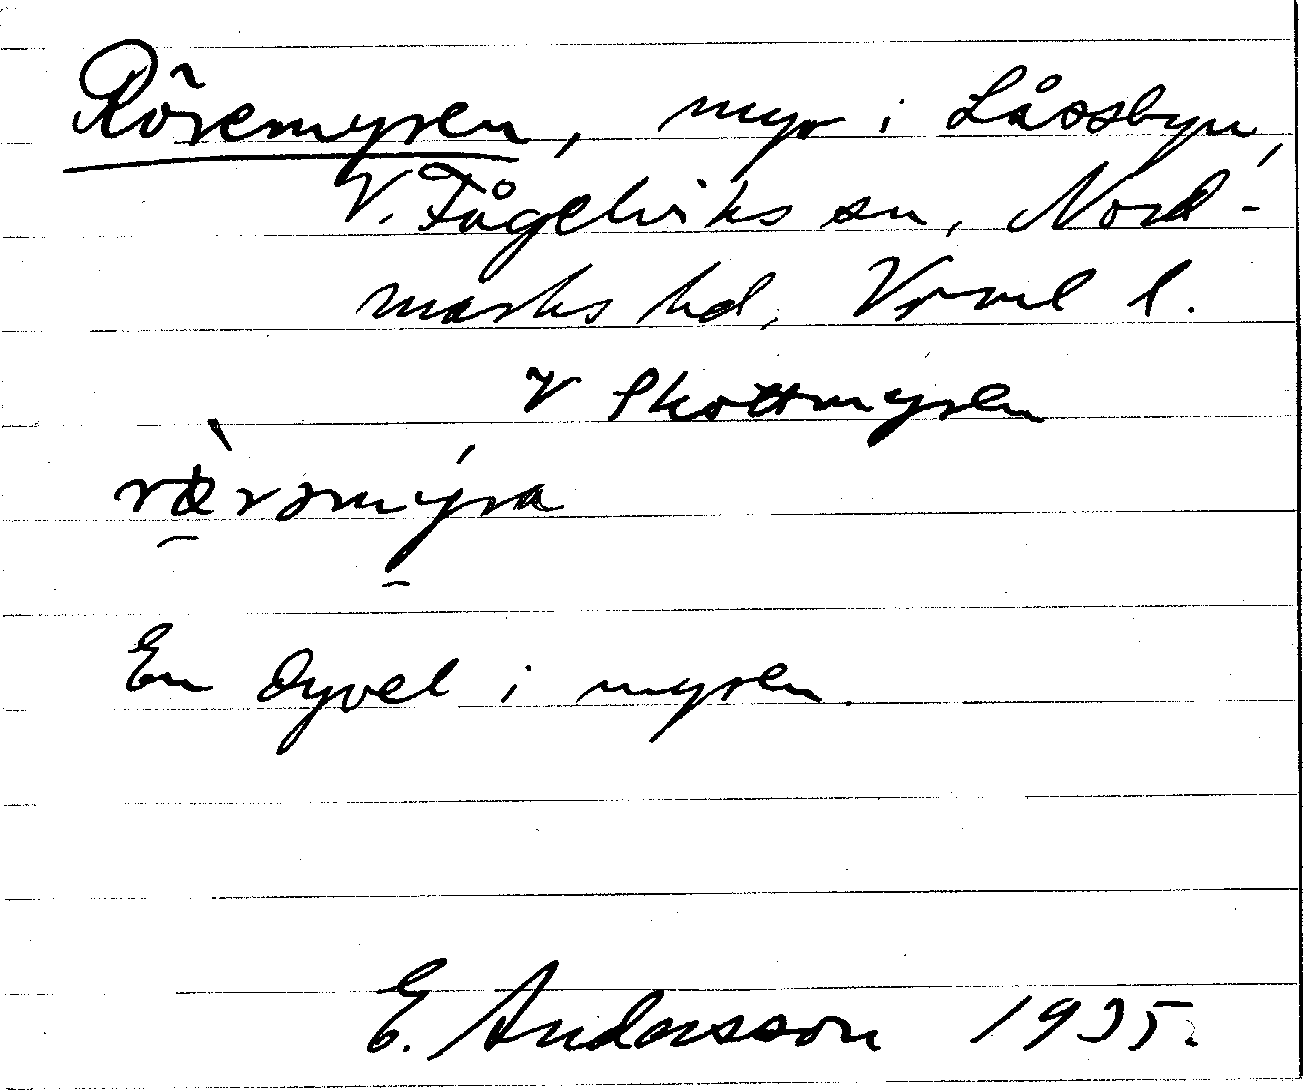 Röremyren, myr i Låssbyn,
V. Fågelviks sn, Nord-
marks hd, Vrml l.
V Skottmyren
rœ̀rəmýra
En dyvel i myren.
E. Andersson 1935.